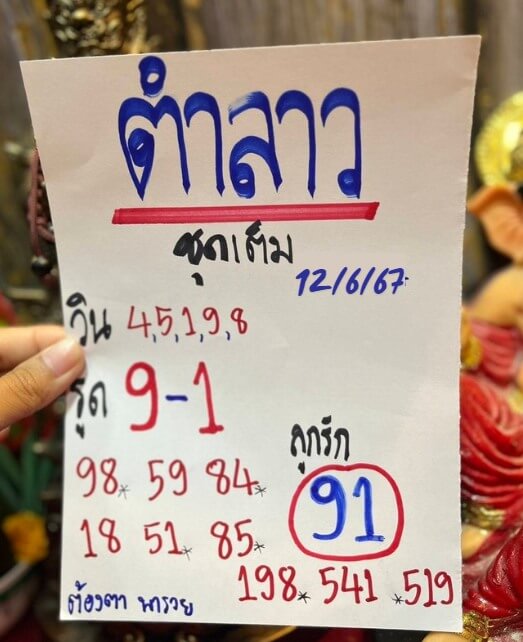 ตำลาว
ชุดเต็ม
12/6/67.
วิน 4,5,1,9,8
รูด 9-1
ลูกรัก
98* 59 84*
91
18 51* 85*
198* 541 *519
ต้องตา พารวย